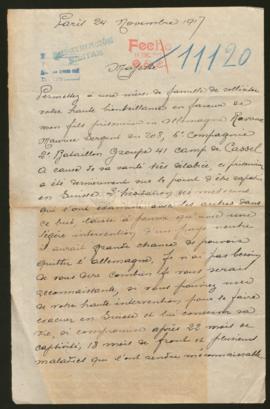 Paris 24 Novembre 1917
Fecha
11120
Majesté
Permettez à une mère de famille de solliciter
votre haute bienveillance en faveur de
mon fils prisonnier en Allemagne
Maurice Sergent du 208, 6e Compagnie
2e Bataillon Groupe 41 camp de Cassel
A cause de sa santé très délabrée, ce prisonnier
a été dernièrement sur le point d'être rapatrié
en Suisse. L'hésitation des médecins
qui l'ont examiné avec les autres dans
ce but laisse à penser qu'une
légère intervention d'un pays neutre
il aurait grande chance de pouvoir
quitter l'Allemagne. Je n'ai pas besoin
de vous dire combien je vous serais
reconnaissante, si vous pouviez user
de votre haute intervention pour le faire
évacuer en Suisse et lui conserver sa
vie, si compromise après 22 mois de
captivité, 18 mois de front et plusieurs
maladies qui l'ont rendu méconnaissable